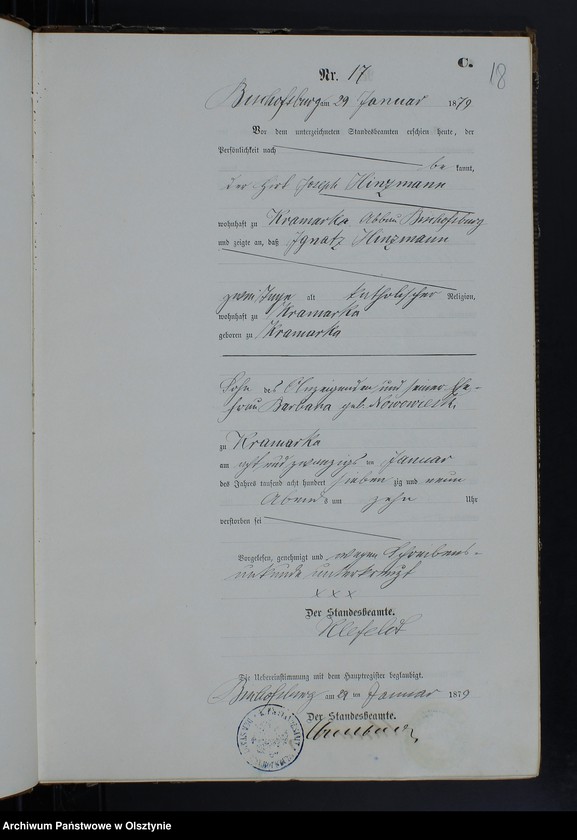 C.
18
Nr. 17
Bischofsburg am 29 Januar 1879
Vor dem unterzeichneten Standesbeamten erschien heute, der
Persönlichkeit nach
be kannt,
der Hirt Joseph Hinzmann
wohnhaft zu Kramarka Abbau Bischofsburg
und zeigte an, daß Ignatz Hinzmann
zwei Tage alt katholischer Religion,
wohnhaft zu Kramarka
geboren zu Kramarka
Sohn des Anzeigenden und seiner Ehe-
frau Barbara geb.
zu Kramarka
am acht und zwanzigsten Januar
des Jahres tausend acht hundert sieben zig und neun
Abends um zehn Uhr
verstorben sei
Vorgelesen, genehmigt und wegen Schreibens-
unkunde unterkreuzt
x x x
Der Standesbeamte.
Klefeldt
Die Uebereinstimmung mit dem Hauptregister beglaubigt.
Bischofsburg am 29 ten Januar 1879
Der Standesbeamte.
Archiwum Państwowe w Olsztynie